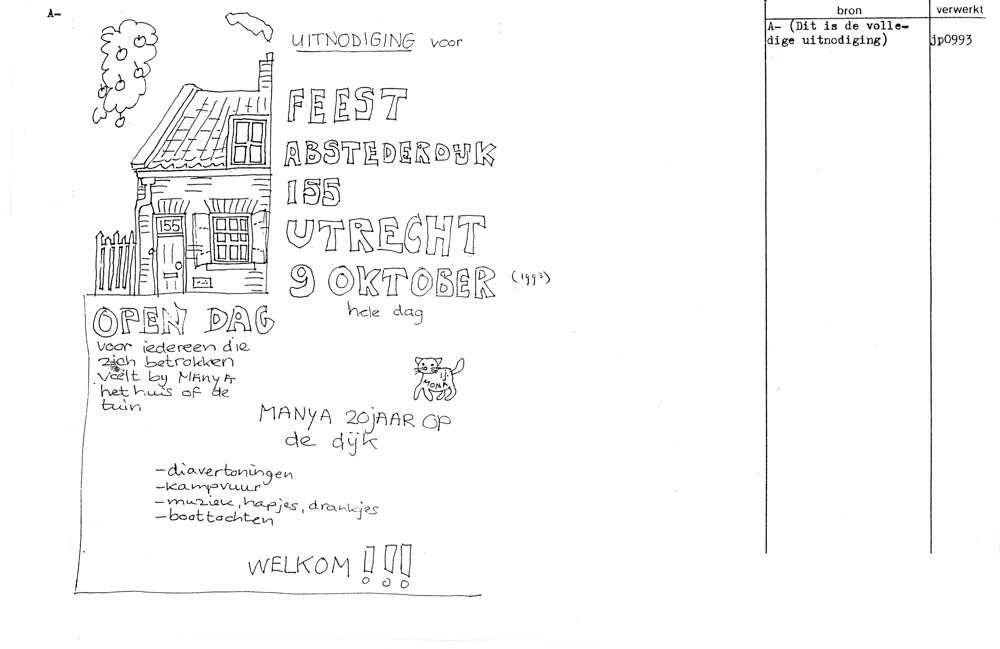 A-
UITNODIGING voor
FEEST
ABSTEDERDIJK
155
UTRECHT
9 OKTOBER (1993)
hele dag
155
OPEN DAG
voor iedereen die
zich betrokken
voelt by MANYA
het huis of de
tuin
IJ.
MONA
MANYA 20 JAAR OP
de dijk
-diavertoningen
-kampvuur
-muziek, hapjes, drankjes
-boottochten
WELKOM !!!
bron
verwerkt
A- (Dit is de volle-
dige uitnodiging)
jp0993